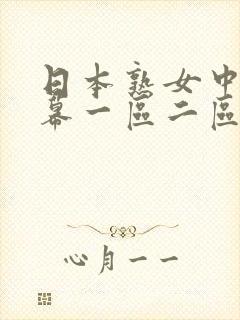 日本熟女中
幕一區二區
心月一一